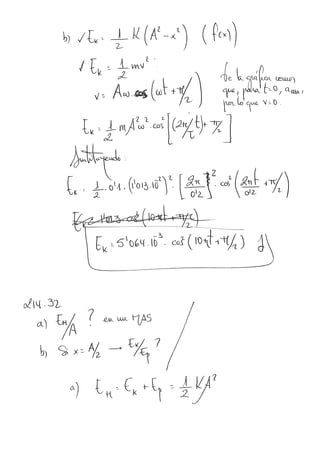 b) ✓ Eₖ = 1/2 K (A² - x²) (f(x))
✓ Eₖ = 1/2 mv²
v = Aω cos (ωt + π/2)
De la gráfica vemos
que, para t=0,
por lo que v=0.
Eₖ = 1/2 m A² ω² · cos² [(2π/T t) + π/2]
Sustituyendo:
Eₖ = 1/2 · 0'1 · (1'013·10⁻¹)² · [2π/0'2]² · cos² (2πt/0'2 + π/2)
Eₖ = 5'064·10⁻³ · cos² (10πt + π/2) J
214.32
a) E_M/A ? en un MAS
b) Si x = A/2 → Eₖ/Eₚ ?
a) E_M = Eₖ + Eₚ = 1/2 KA²